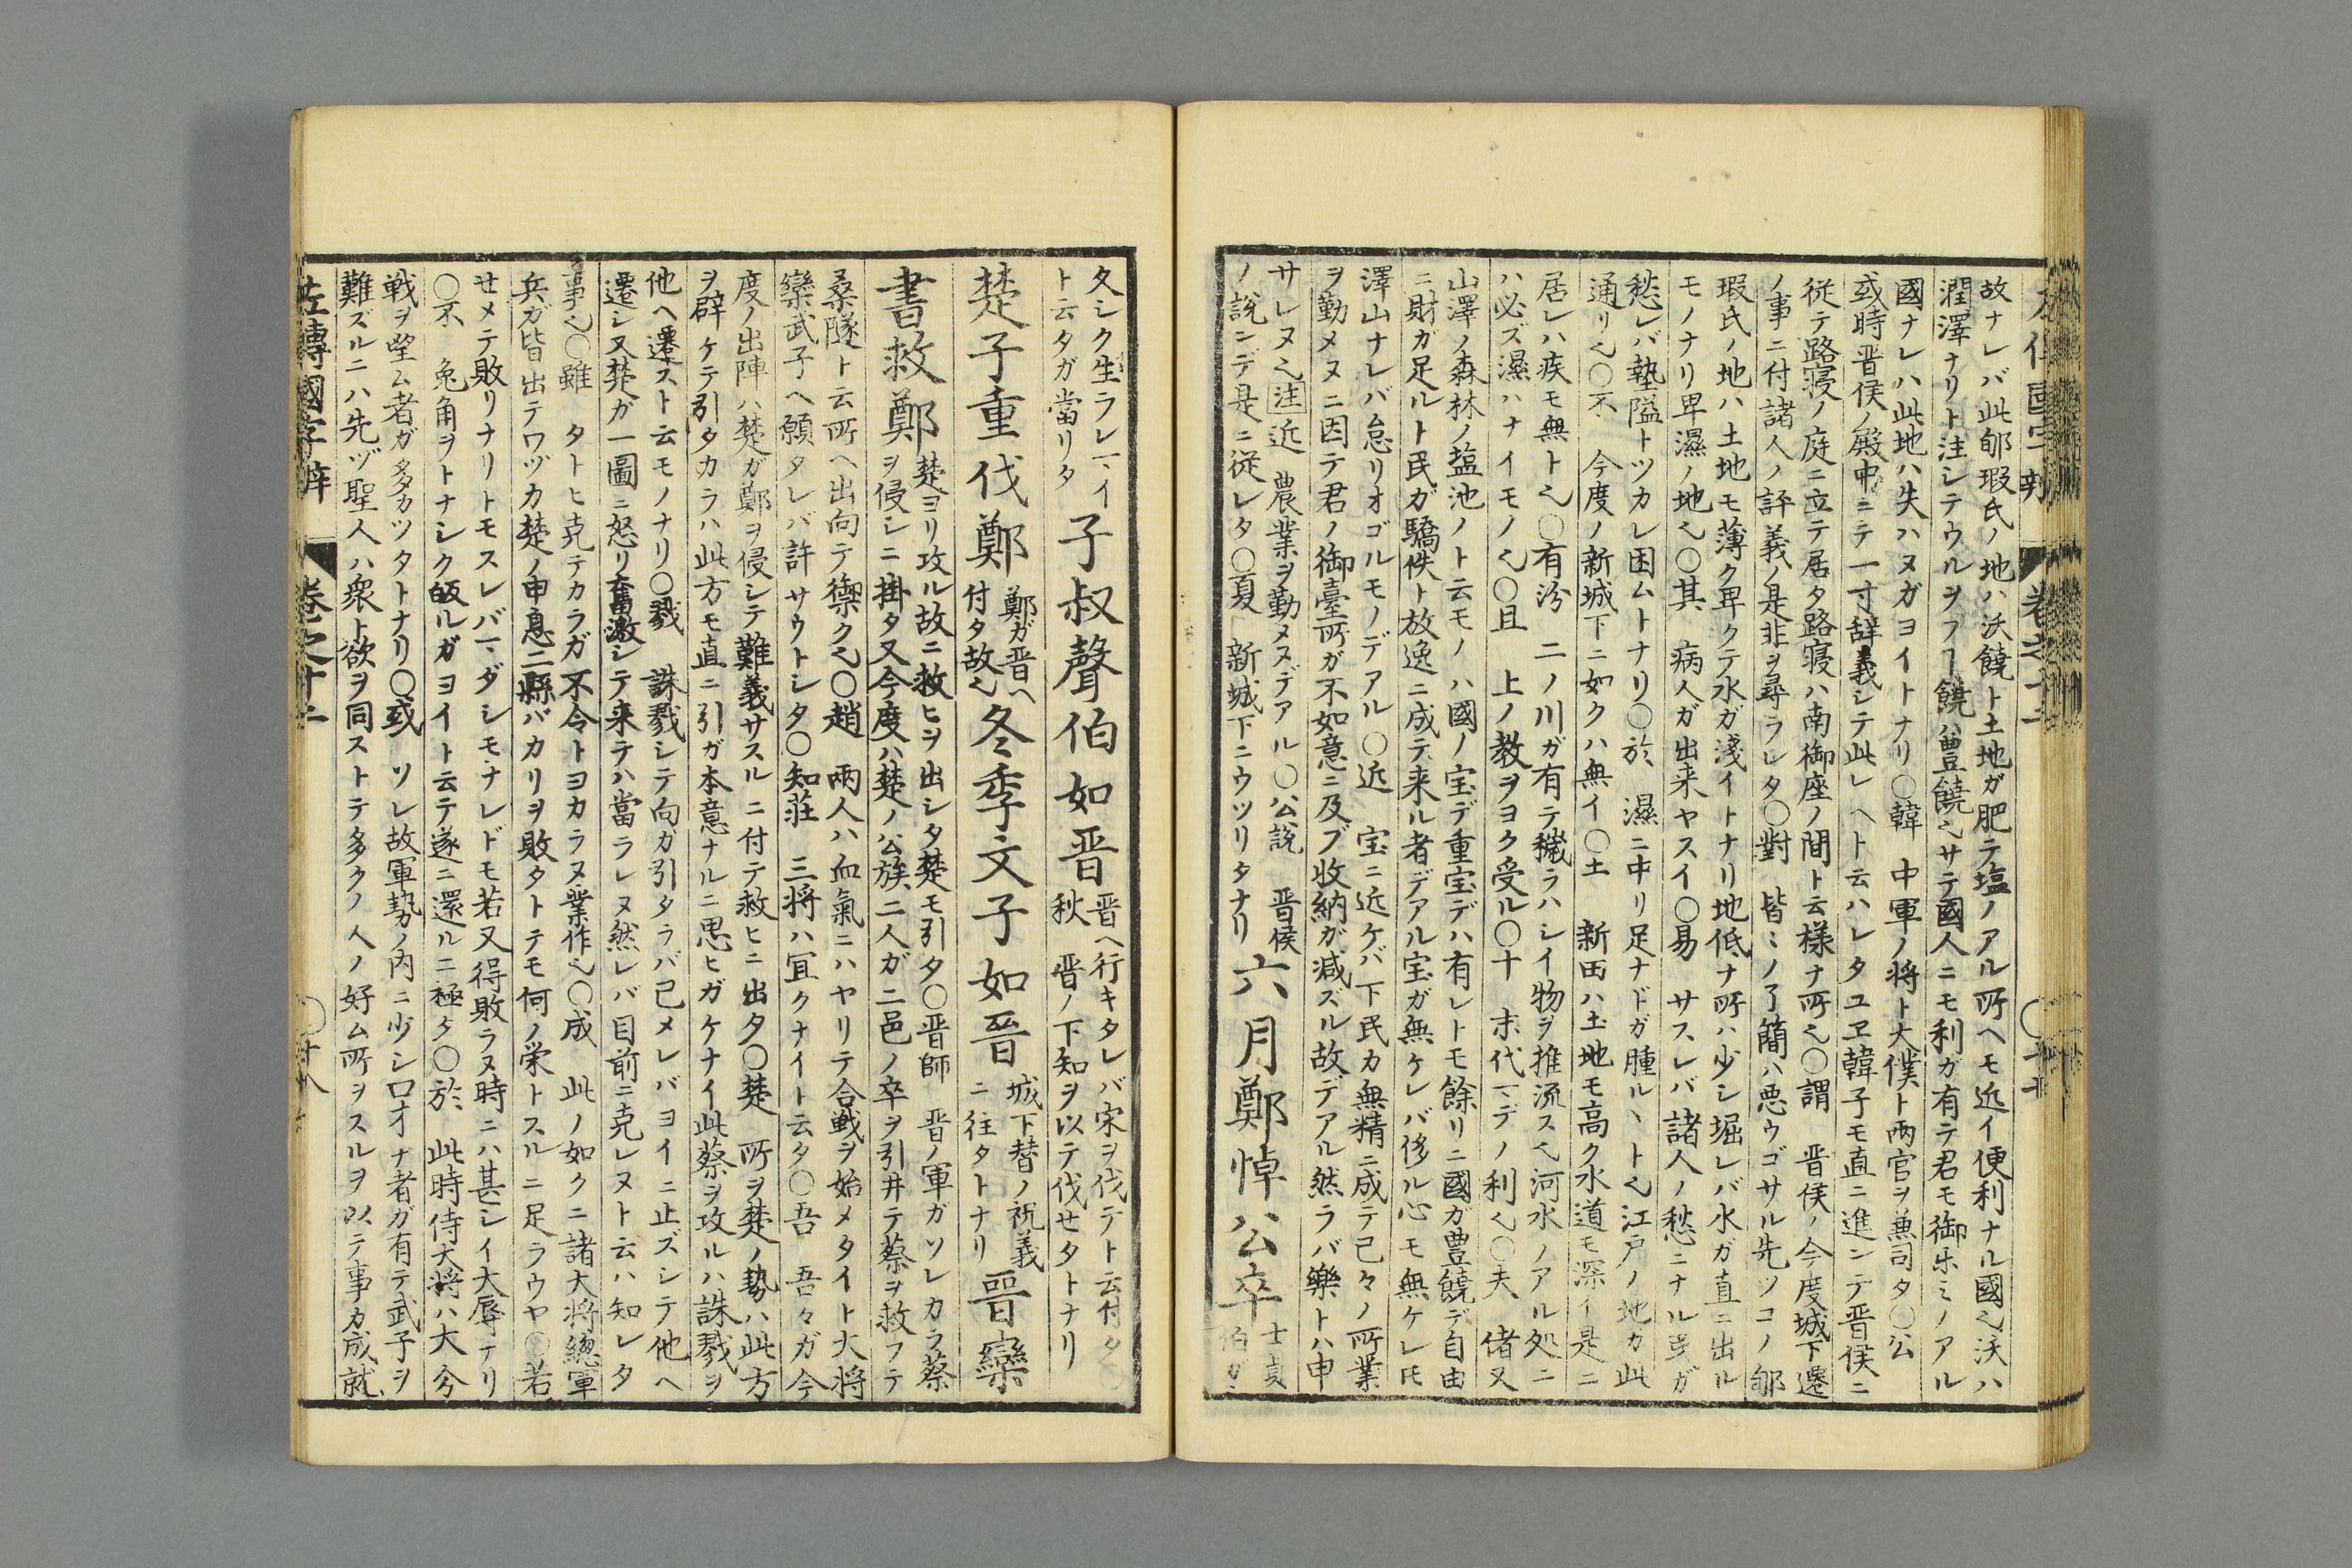 故ナレバ此郇瑕氏ノ地ハ沃饒ト土地ガ肥テ塩ノアル所ヘモ近イ便利ナル國也沃ハ
潤澤ナリト注シテウルヲフヿ饒ハ豊饒也サテ國人ニモ利ガ有テ君モ御樂ミノアル
國ナレハ此地ハ失ハヌガヨイトナリ○韓 中軍ノ将ト大僕ト兩官ヲ兼司タ○公
或時晋侯ノ殿中ニテ一寸辞義シテ此レヘト云ハレタユヱ韓子モ直ニ進ンテ晋侯ニ
従テ路寝ノ庭ニ立テ居タ路寝ハ南御座ノ間ト云様ナ所也○謂 晋侯ノ今度城下遷
ノ事ニ付諸人ノ評義ノ是非ヲ尋ラレタ○對 皆ミノ了簡ハ悪ウゴサル先ソコノ郇
瑕氏ノ地ハ土地モ薄ク卑クテ水ガ淺イトナリ地低ナ所ハ少シ堀レバ水ガ直ニ出ル
モノナリ卑濕ノ地也○其 病人ガ出来ヤスイ○易 サスレバ諸人ノ愁ニナル
愁レバ墊隘トツカレ困ムトナリ○於 濕ニ中リ足ナドガ腫ルヽト也江戸ノ地カ此
通リ也○不 今度ノ新城下ニ如クハ無イ○土 新田ハ土地モ高ク水道モ深イ是ニ
居レハ疾モ無ト也○有汾 二ノ川ガ有テ穢ラハシイ物ヲ推流ス也河水ノアル処ニ
ハ必ズ濕ハナイモノ也○且 上ノ教ヲヨク受ル○十 末代マデノ利也○夫 偖又
山澤ノ森林ノ塩池ノト云モノハ國ノ宝デ重宝デハ有レトモ餘リニ國ガ豊饒デ自由
ニ財ガ足ルト民ガ驕佚ト放逸ニ成テ来ル者デアル宝ガ無ケレバ侈ル心モ無ケレ𪜈
澤山ナレバ怠リオゴルモノデアル○近 宝ニ近ケバ下民カ無精ニ成テ己々ノ所業
ヲ勤メヌニ因テ君ノ御臺所ガ不如意ニ及ブ收納ガ減ズル故デアル然ラバ樂トハ申
サレヌ也注近 農業ヲ勤メヌデアル○公説 晋侯
ノ説ンデ是ニ従レタ○夏 新城下ニウツリタナリ
六月鄭悼公卒 士貞
伯ガ
タシク生ラレマイ
ト云タガ當リタ
子叔聲伯如晋 晋ヘ行キタレバ宋ヲ伐テト云付タ
秋 晋ノ下知ヲ以テ伐セタトナリ
楚子重伐鄭 鄭ガ晋ヘ
付タ故也
冬季文子如晉 城下替ノ祝義
ニ往タトナリ
晉欒
書救鄭 楚ヨリ攻ル故ニ救ヒヲ出シタ楚モ引タ○晋師 晋ノ軍ガソレカラ蔡
ヲ侵シニ掛タ又今度ハ楚ノ公族二人ガ二邑ノ卒ヲ引井テ蔡ヲ救フテ
桑隧ト云所ヘ出向テ禦ク也○趙 兩人ハ血氣ニハヤリテ合戦ヲ始メタイト大将
欒武子ヘ願タレバ許サウトシタ○知莊 三将ハ冝クナイト云タ○吾 吾々ガ今
度ノ出陣ハ楚ガ鄭ヲ侵シテ難義サスルニ付テ救ヒニ出タ○楚 所ヲ楚ノ勢ハ此方
ヲ辟ケテ引タカラハ此方モ直ニ引ガ本意ナルニ思ヒガケナイ此蔡ヲ攻ルハ誅戮ヲ
他ヘ遷スト云モノナリ○戮 誅戮シテ向ガ引タラバ己メレバヨイニ止ズシテ他ヘ
遷シ又楚ガ一圖ニ怒リ奮激シテ来テハ當ラレヌ然レバ目前ニ克レヌト云ハ知レタ
事也○雖 タトヒ克テカラガ不令トヨカラヌ業作也○成 此ノ如クニ諸大将總軍
兵ガ皆出テワヅカ楚ノ申息二縣バカリヲ敗タトテモ何ノ栄トスルニ足ラウヤ○若
せメテ敗リナリトモスレバマダシモナレドモ若又得敗ラヌ時ニハ甚シイ大辱ナリ
○不 兔角ヲトナシク皈ルガヨイト云テ遂ニ還ルニ極タ○於 此時侍大将ハ大分
戦ヲ望ム者ガ多カツタトナリ○或 ソレ故軍勢ノ内ニ少シ口才ナ者ガ有テ武子ヲ
難ズルニハ先ヅ聖人ハ衆ト欲ヲ同ストテ多クノ人ノ好ム所ヲスルヲ以テ事カ成就
左傳國字辯 巻之十二 ○十八